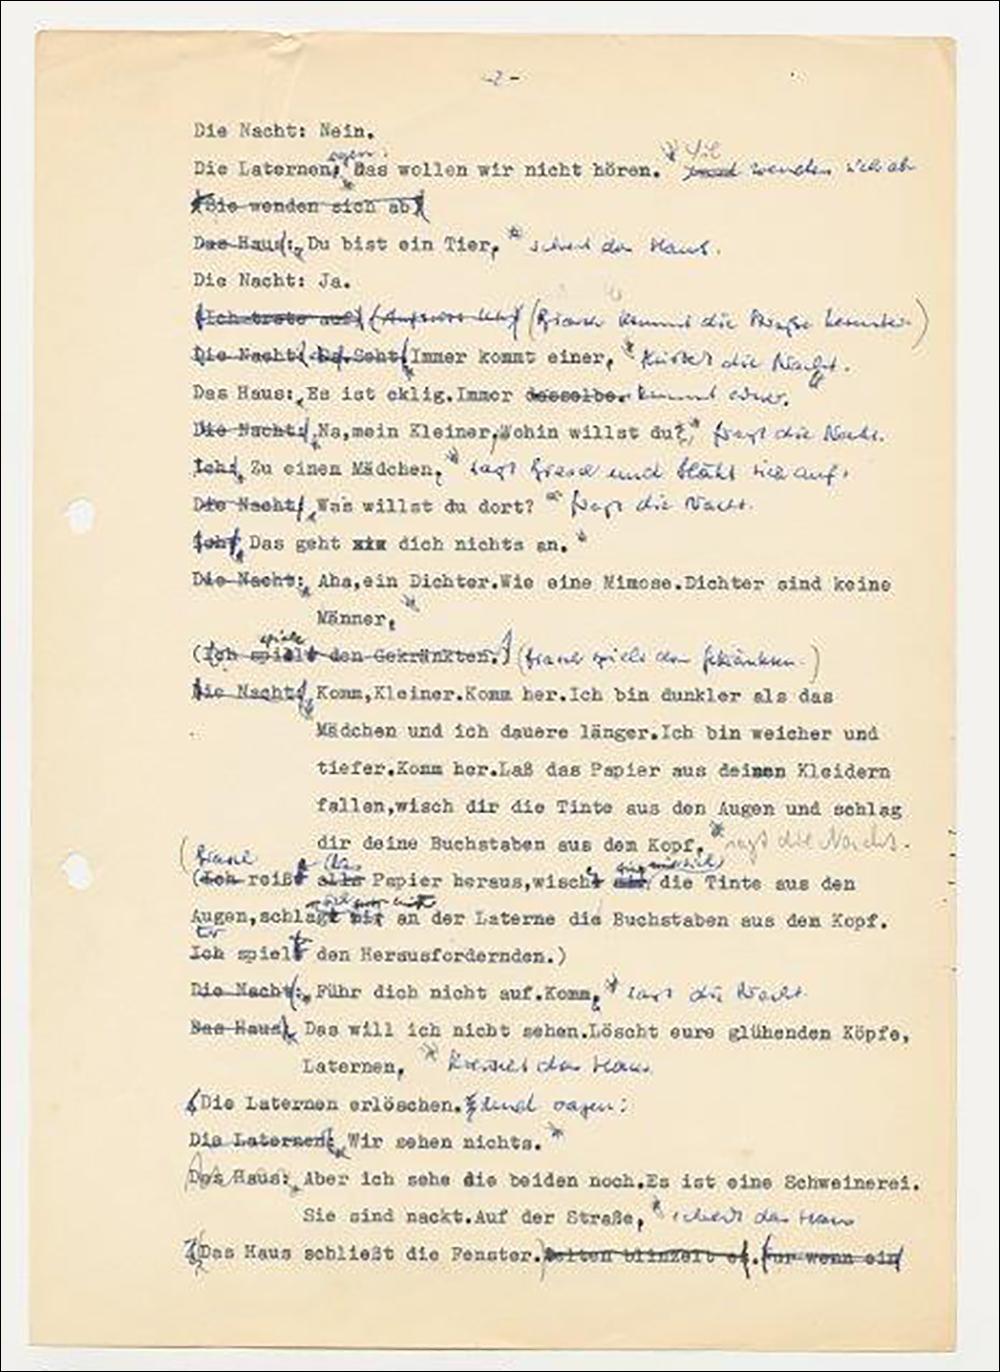 -2-
Die Nacht: Nein.
Die Laternen, sagen: Das wollen wir nicht hören. und wenden sich ab
(Sie wenden sich ab)
Das Haus: Du bist ein Tier, schreit das Haus.
Die Nacht: Ja.
(Ich trete auf) ( kommt die Straße herunter.)
Die Nacht: Da. Seht. Immer kommt einer, flüstert die Nacht.
Das Haus: Es ist eklig.Immer dasselbe. kommt einer.
Die Nacht: Na,mein Kleiner,Wohin willst du?, fragt die Nacht.
Ich: Zu einem Mädchen, sagt und bläht sich auf.
Die Nacht: Was willst du dort? fragt die Nacht.
Ich: Das geht xix dich nichts an.
Die Nacht: Aha,ein Dichter.Wie eine Mimose.Dichter sind keine
Männer,
spiele
(Ich spielt den Gekränkten.) ( spielt den Gekränkten.)
Die Nacht: Komm,Kleiner.Komm her.Ich bin dunkler als das
Mädchen und ich dauere länger.Ich bin weicher und
tiefer.Komm her.Laß das Papier aus deinen Kleidern
fallen,wisch dir die Tinte aus den Augen und schlag
dir deine Buchstaben aus dem Kopf, sagt die Nacht.
(Ich reißt alls Papier heraus,wischt mir die Tinte aus den
Augen,schlagt mir an der Laterne die Buchstaben aus dem Kopf.
Er
Ich spielt den Herausfordernden.)
Die Nacht: Führ dich nicht auf.Komm, sagt die Nacht.
Das Haus: Das will ich nicht sehen.Löscht eure glühenden Köpfe,
Laternen, das Haus
(Die Laternen erlöschen. Und sagen:
Die Laternen: Wir sehen nichts.
Das Haus: Aber ich sehe die beiden noch.Es ist eine Schweinerei.
Sie sind nackt.Auf der Straße, schreit das Haus
(Das Haus schließt die Fenster.)Selten blinzelt es.Nur wenn ein